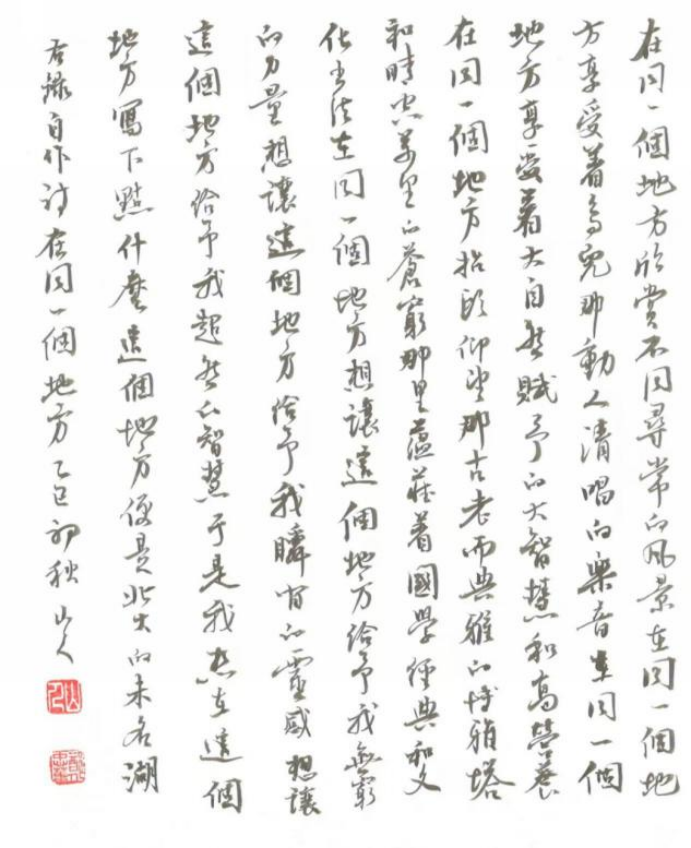 在同一個地方欣賞不同尋常的風景在同一個地
方享受着鳥兒那動人清唱的樂音在同一個
地方享受着大自然賦予的大智慧和高營養
在同一個地方抬頭仰望那古老而典雅的博雅塔
和晴空萬里的蒼窮那里蘊藏着國學經典和文
化在同一個地方想讓這個地方給予我無窮
的力量想讓這個地方給予我瞬間的靈感想讓
這個地方給予我超然的智慧于是我在這個
地方寫下點什麼這個地方便是北大的未名湖
右録自作詩在同一個地方乙巳初秋山人